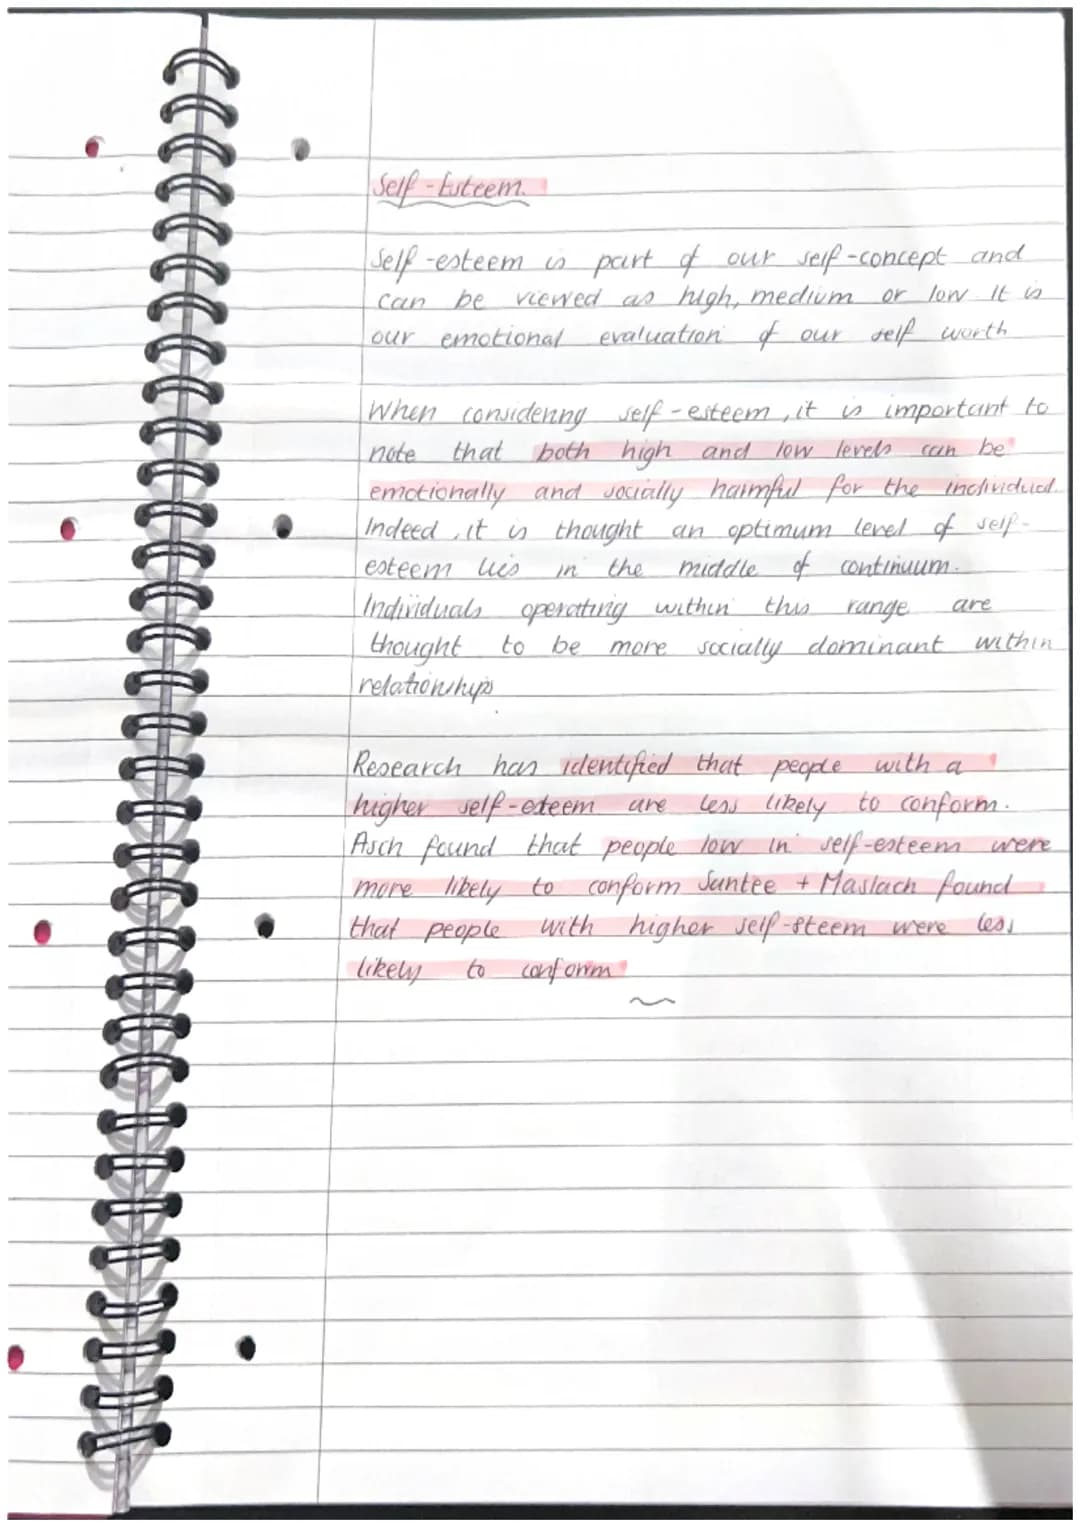 Self-Esteem.
Self-esteem is part of our self-concept and
can be viewed as high, medium or low. It is
our emotional evaluation of our self worth
When considering self-esteem, it is important to
note that both high and low levels can be
emotionally and socially harmful for the individual.
Indeed, it is thought an optimum level of self-
esteem lies in the middle of continuum.
Individuals operating within this range are
thought to be more socially dominant within
relationships
Research has identified that people with a
higher self-esteem are less likely to conform.
Asch found that people low in self-esteem were
more likely to conform Santee + Maslach found
that people with higher self-steem were less
likely to conform